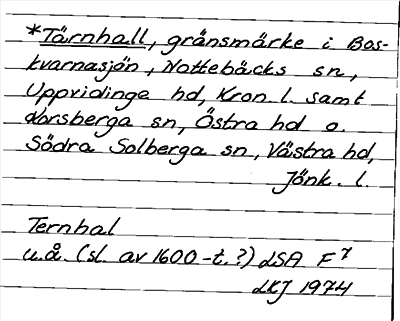 *Tärnhall, gränsmärke i Bos-
kvarnasjön, Nottebäcks sn,
Uppvidinge hd, Kron. l. samt
Korsberga sn, Östra hd o.
Södra Solberga sn, Västra hd,
Jönk. l.
Ternhal
u.å. (sl. av 1600-t.?) LSA F7
LKJ 1974